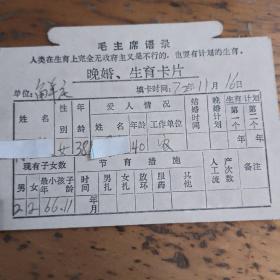 毛主席语录
人类在生育上完全无政府主义是不行的，也要有计划的生育。
晚婚、生育卡片
单位： 填卡时间：72年11月16日
姓名 性别 年龄 爱人情况 结婚时间 晚婚计划 生育计划
姓名 年龄 工作单位 第一个 第二个
女 38 40 年 年
现有子女数 节育措施 人工流产次数 备注
男 女 最小孩子年龄 时间 男扎 女扎 放环 服药 其他
2 2 66.11 年月